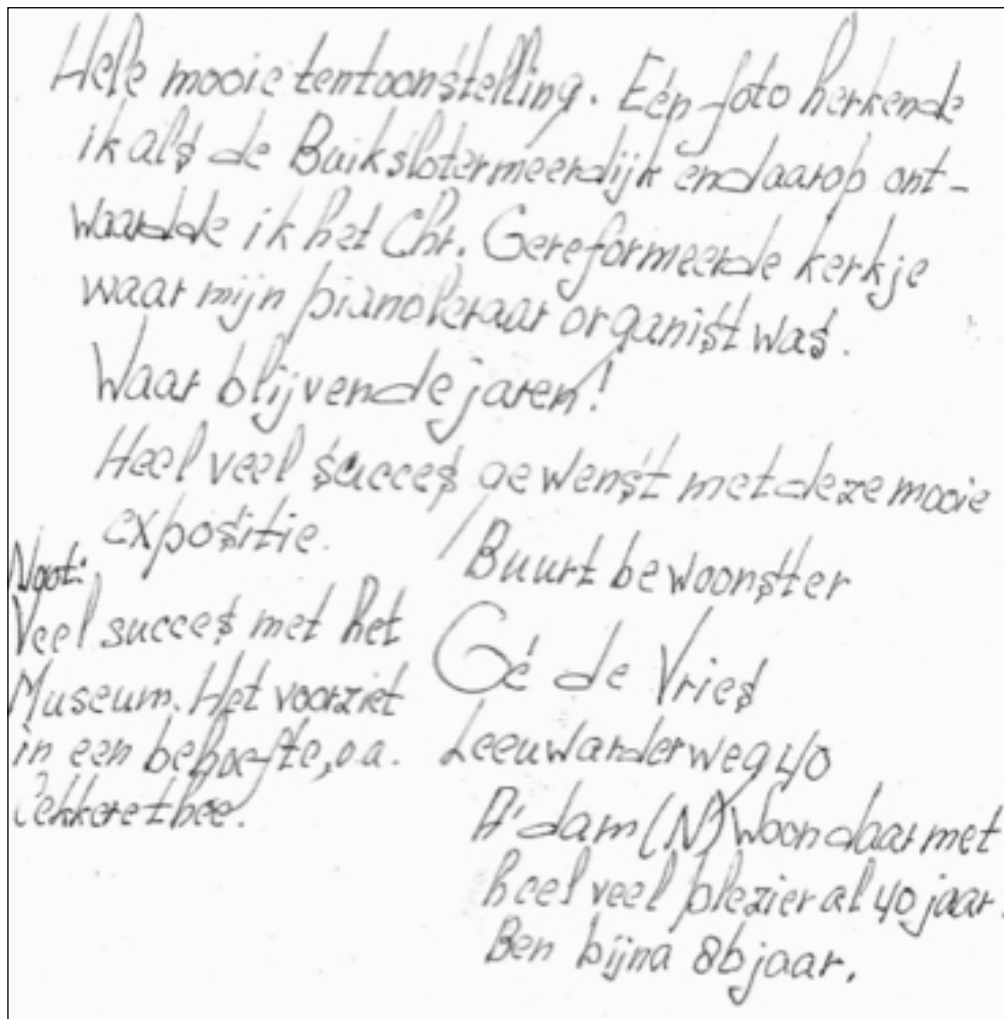 Hele mooie tentoonstelling. Eén foto herkende
ik als de Buikslotermeerdijk en daarop ont-
waardde ik het Chr. Gereformeerde kerkje
waar mijn pianoleraar organist was.
Waar blijven de jaren!
Heel veel succes gewenst met deze mooie
expositie.
Buurtbewoonster
Gé de Vries
Leeuwarderweg 40
A'dam (N) Woon daar met
heel veel plezier al 40 jaar.
Ben bijna 86 jaar.
Noot:
Veel succes met het
Museum. Het voorziet
in een behoefte, o.a.
lekkere thee.